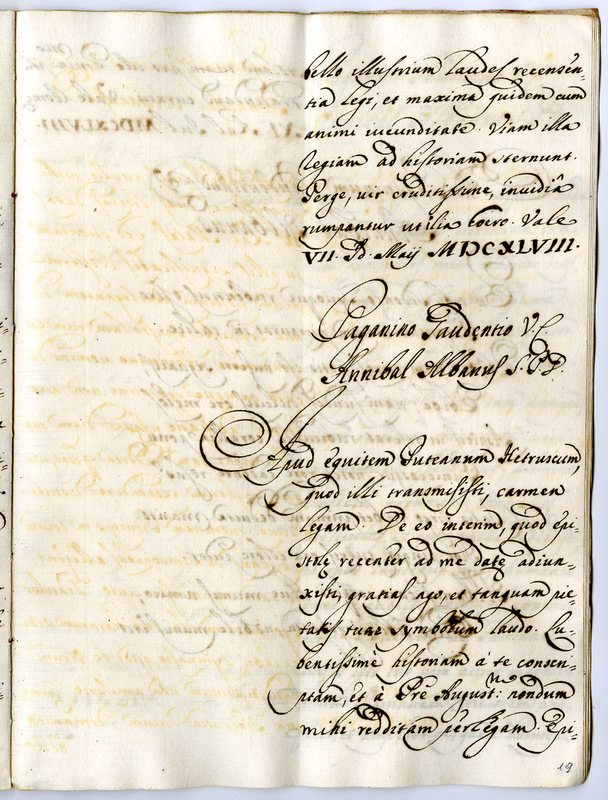 bello illustrium laudes recensen-
tia legi, et maxima quidem cum
animi iucunditate. Viam illa
regiam ad historiam sternunt.
Perge, vir eruditissime, invidiâ
rumpantur ut ilia Codro. Vale
VII. Id. Maij MDCXLVIII.
Paganino Gaudentio V. C.
Annibal Albanus S. P. D.
Apud equitem Puteanum Hetruscum,
quod illi transmisisti, carmen
legam. De eo interim, quod epi-
stolę recenter ad me datę adiun-
xisti, gratias ago, et tanquam pie-
tatis tuae symbolum laudo. Lu-
bentissimè historiam à te conscri-
ptam, et à Pre Augustno: nondum
mihi redditam perlegam. Epi-
19